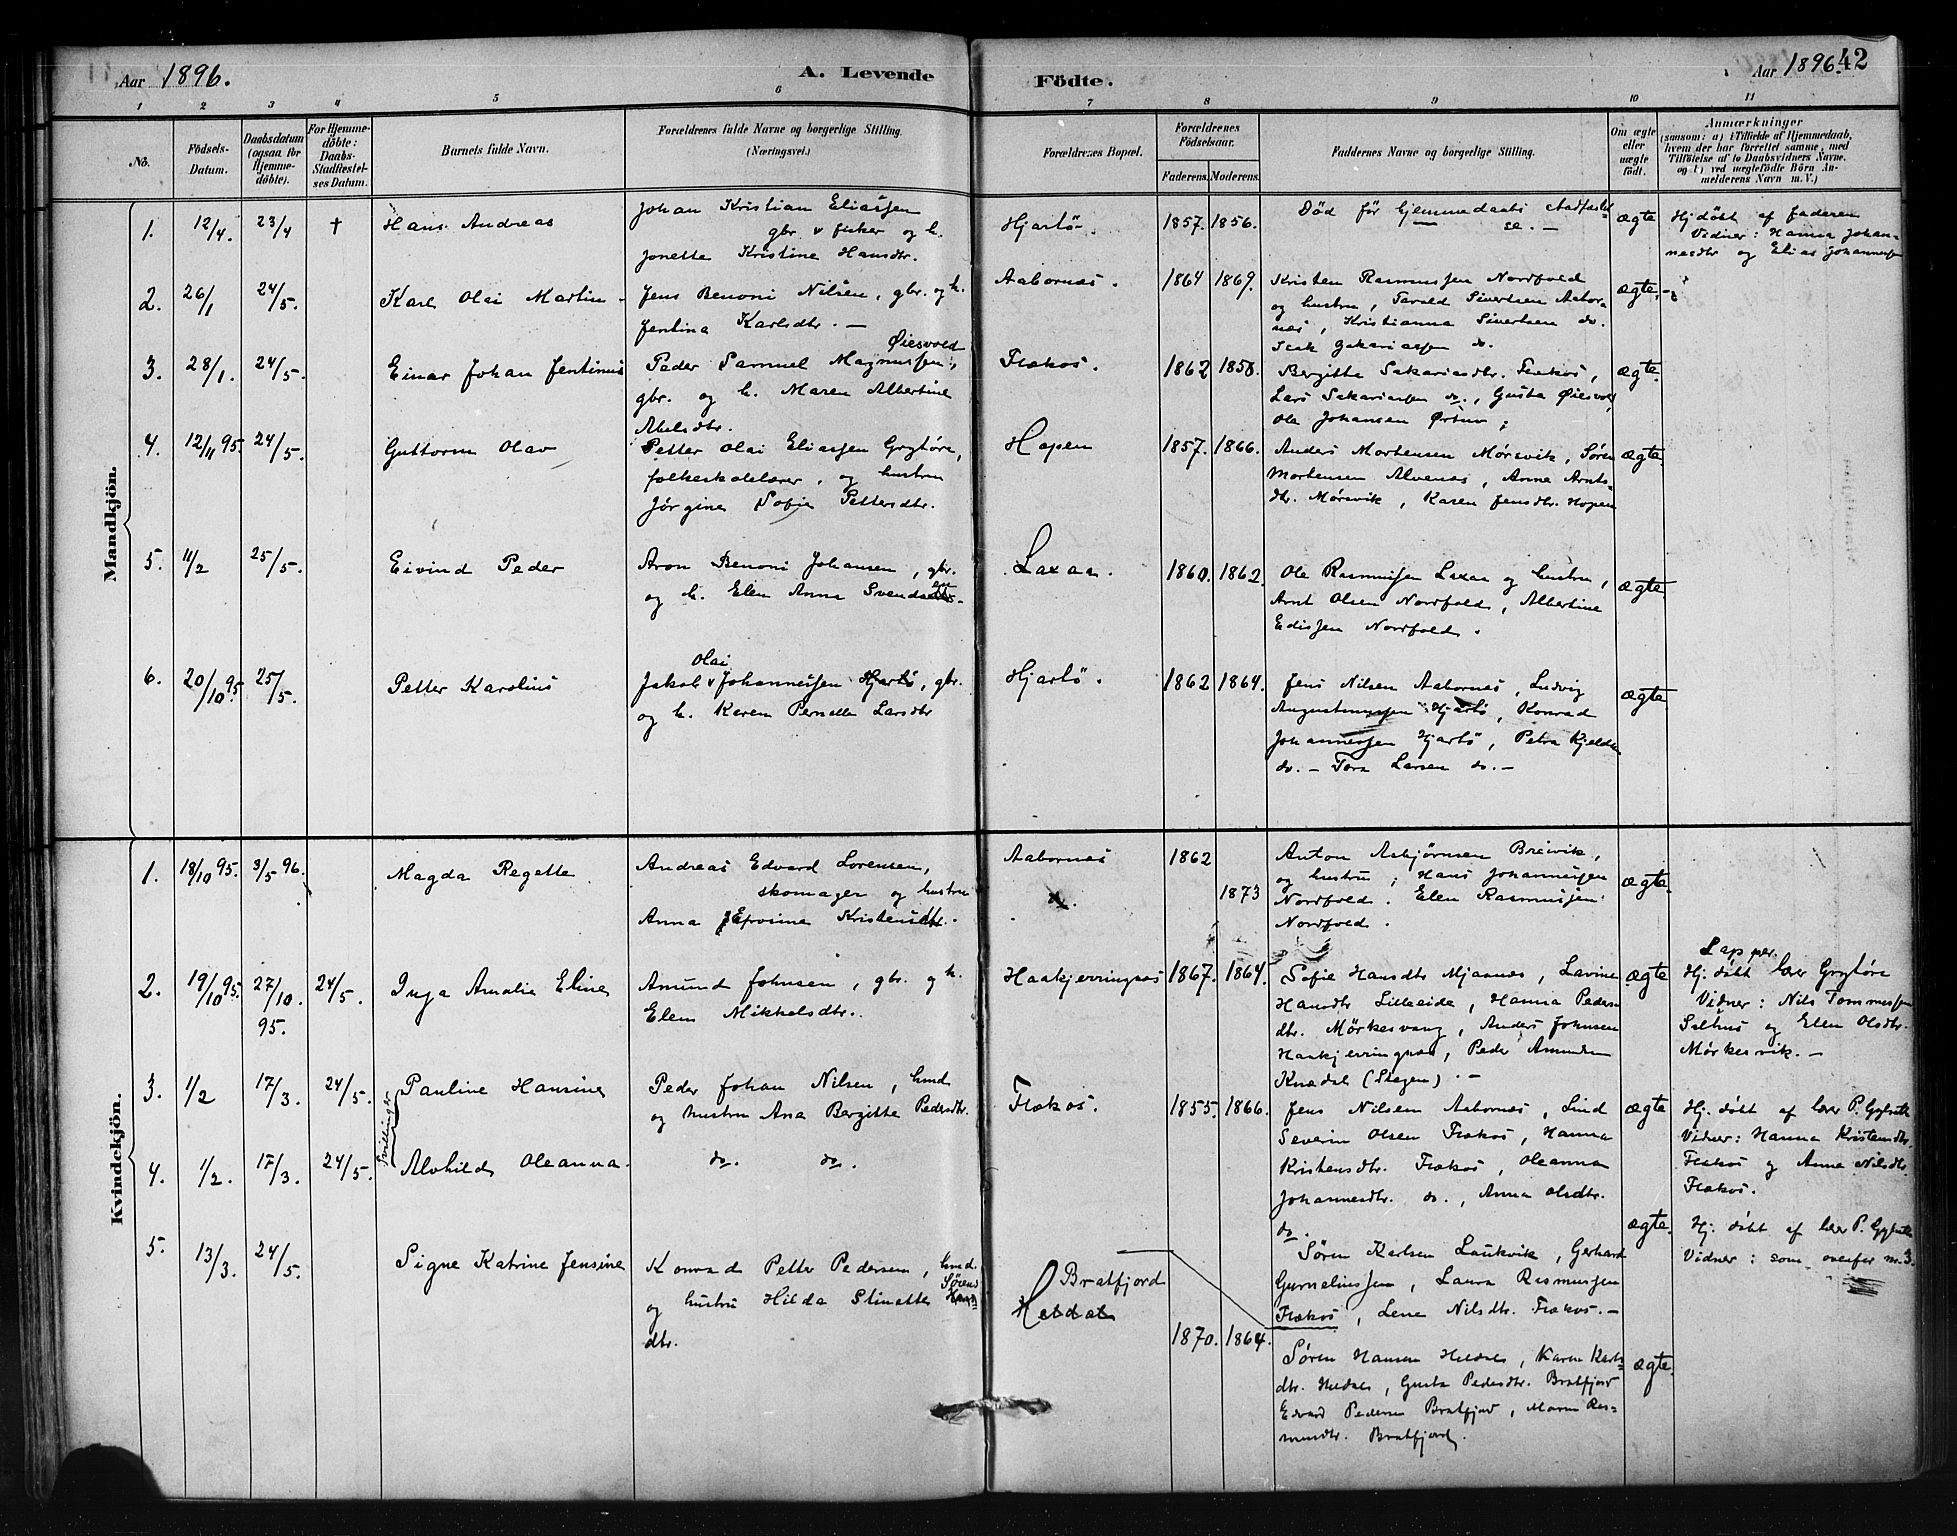 Aar 1896.
A. Levende
Födte.
Aar 1896.
42
1 2 3 4 5 6 7 8 9 10 11
No.
Födsels-
Datum.
Daabsdatum
(ogsaa for
Hjemme-
döbte).
For Hjemme-
döbte:
Daabs-
Stadfæstel-
ses Datum.
Barnets fulde Navn.
Forældrenes fulde Navne og borgerlige Stilling.
(Næringsvei.)
Forældrenes Bopæl.
Forældrenes
Födselsaar.
Faderens. Moderens.
Faddernes Navne og borgerlige Stilling.
Om ægte
eller
uægte
födt.
Anmærkninger
(saasom: a) i Tilfælde af Hjemmedaab,
hvem der har forrettet samme, med
Tilföielse af to Daabsvidners Navne,
og b) ved uægtefödte Börn An-
melderens Navn m. V.)
Mandkjön.
1. 12/4. 23/4 † Hans Andreas
Johan Kristian Eliassen
gbr. & fisker og h.
Jonette Kristine Hansdtr.
Hjartö. 1857. 1856.
Död før hjemmedaabs stadfæstel-
se. –
ægte
Hj.döbt af faderen
Vidner: Hanna Johan-
nesdtr og Elias Johannessen
2. 26/1 24/5. Karl Olai Martin
Jens Benoni Nilsen, gbr. og h.
Jentina Karlsdtr. –
Aabornes. 1864 1869.
Kristen Rasmussen Nordfold
og hustru, Tarald Sivertsen Aabor-
nes, Kristianna Sivertsen do.
Isak Zakariassen do.
ægte.
3. 28/1. 24/5. Einar Johan Jentinus
Øiesvold
Peder Samuel Magnussen,
gbr. og h. Maren Albertine
Abelsdtr.
Flækos. 1862 1858.
Bergitte Sakariasdtr. Flækos,
Lars Sakariassen do., Gusta Øiesvold,
Ole Johansen Ørtuv;
ægte.
4. 12/11 95. 24/5. Guttorm Olav
Petter Olai Eliassen Grytøre,
folkeskolelærer, og hustru
Jørgine Sofie Pettersdtr.
Hopen 1857. 1866.
Anders Mortensen Mørsvik, Søren
Mortensen Alvenes, Anne Arnts-
dtr. Mørsvik, Karen Jensdtr. Hopen
ægte.
5. 11/2 25/5. Eivind Peder
Aron Benoni Johansen, gbr.
og h. Elen Anna Svendsen.
Laxaa. 1860. 1862.
Ole Rasmussen Laxaa og hustru,
Arnt Olsen Nordfold, Albertine
Edissen Nordfold.
ægte.
6. 20/10 95. 25/5. Petter Karolius
Olai
Jakob v Johannessen Hjartö, gbr.
og h. Karen Pernella Larsdtr
Hjartö. 1862 1864.
Jens Nilsen Aabornes, Ludvig
Augustinussen Hjartö, Konrad
Johannessen Hjartö, Petra Kjelds
do. – Tora Larsen do. –
ægte
Kvindekjön.
1. 18/10 95. 3/5 96. Magda Regette
Andreas Edvard Lorensen,
skomager og hustru
Anna Efrosine Kristensdtr.
Aabornes
1862 1873
Anton Asbjørnsen Breivik,
og hustru, Hans Johannessen
Nordfold. Elen Rasmussen
Nordfold.
ægte.
2. 19/10 95. 27/10. 95. 24/5. Inga Amalie Eline
Amund Johnsen, gbr. og h.
Elen Mikkelsdtr..
Haakjerringnes 1867. 1864.
Sofie Hansdtr Mjaanes, Lavine
Hansdtr Lilleeide, Hanna Peders-
dtr. Mörkesvang, Anders Johnsen
Haakjerringnes, Peder Amundsen
Knædal (Stegen). –
ægte
Lapper.
Hj. döbt lærer Grytøre
Vidner: Nils Tommessen
Selhus og Elen Olsdtr.
Mørkesvik. –
3. 1/2 17/3. 24/5. Pauline Hansine
Tvillinger
Peder Johan Nilsen, Lmd
og hustru Ana Bergitte Pedersdtr.
Flækos. 1855. 1866.
Jens Nilsen Aabornes, Lind
Severin Olsen Flækos, Hanna
Kristensdtr. Flækos, Oleanna
Johannesdtr. do., Anna Olsdtr.
do.
ægte
Hj. döbt af lærer P. Grytøre
Vidner: Hanna Kristensdtr.
Flækos og Anna Nilsdtr.
Flækos.
4. 1/2. 17/3. 24/5. Alvhild Oleanna.
do. do.
Søren Karlsen Laukvik, Gerhard
Gurneliussen, Laura Rasmussen
Flækos, Lene Nilsdtr. Flækos. –
ægte.
Hj. döbt af lærer P. Grytøre
Vidner: som ovenfor nr. 3.
5. 13/3. 24/5. Signe Katrine Jensine
Konrad Petter Pedersen, Lmd.
og hustru Hilda Stinette Sørens-
dtr.
Bratfjord
Heldal
1870. 1864.
Søren Hansen Heldal, Karen Karls-
dtr. Heldal, Gusta Pedersdtr. Bratfjord
Edvard Pedersen Bratfjord, Maren Ras-
musdtr. Bratfjord.
ægte.